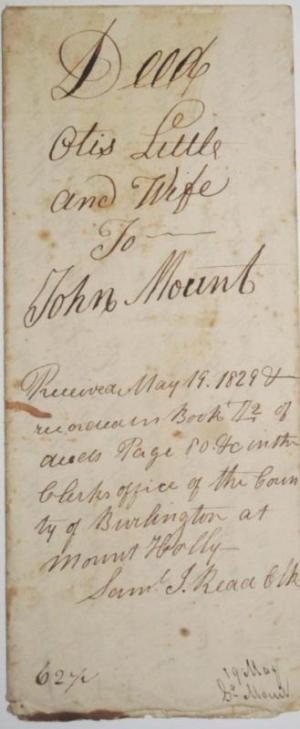 Deed
Otis Little
and Wife
To
John Mount
Received May 19. 1829 &
recorded in Book of
deeds Page 80 &c in the
Clerks office of the Coun
ty of Burlington at
Mount Holly
Saml. J. Read Clk
62½
19 May